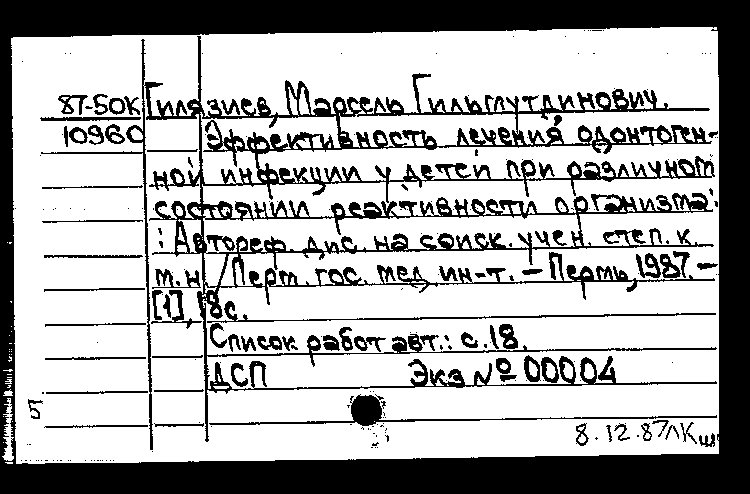 87-50К Гилязиев, Марсель Гильмутдинович.
10960 Эффективность лечения одонтоген-
ной инфекции у детей при различном
состоянии реактивности организма:
: Автореф. дис. на соиск. учен. степ. к.
м. н. / Перм. гос. мед. ин-т. – Пермь, 1987. –
[1], 18 с.
Список работ авт.: с. 18.
ДСП Экз № 00004
8.12.87 ЛК